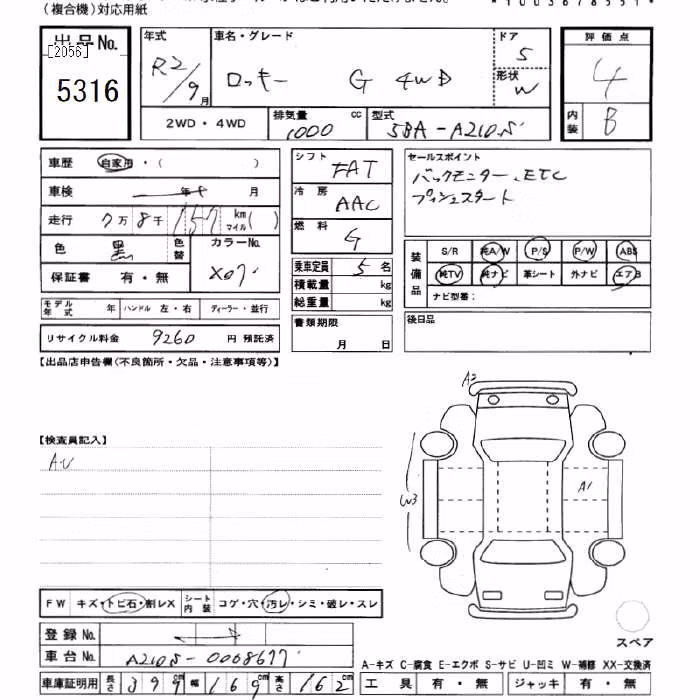 (複合機)対応用紙
出品No.
[2056]
5316
年式 R2/9月
車名・グレード ロッキー G 4WD
ドア 5
形状 W
評価点 4
内装 B
2WD・4WD
排気量 1000 cc
型式 5BA-A210S
車歴 自家用・( )
車検 年 月
走行 7万8千157km マイル( )
色 黒 色替 カラーNo. X07
保証書 有・無
シフト FAT
冷房 AAC
燃料 G
乗車定員 5名
積載量 kg
総重量 kg
書類期限 月 日
セールスポイント
バックモニター、ETC
プッシュスタート
装備品 S/R 純A/W P/S P/W ABS
純TV 純ナビ 革シート 外ナビ エアB
ナビ型番:
後日品
モデル年式 年 ハンドル 左・右 ディーラー・並行
リサイクル料金 9260 円 預託済
【出品店申告欄(不良箇所・欠品・注意事項等)】
【検査員記入】
A.U
A2
W3
A1
FW キズ・トビ石・割レX シート内装 コゲ・穴・汚レ・シミ・破レ・スレ
登録No.
車台No. A210S-0008677
車庫証明用 長さ 399cm 幅 169cm 高さ 162
スペア
A-キズ C-腐食 E-エクボ S-サビ U-凹ミ W-補修 XX-交換済
工具 有・無 ジャッキ 有・無